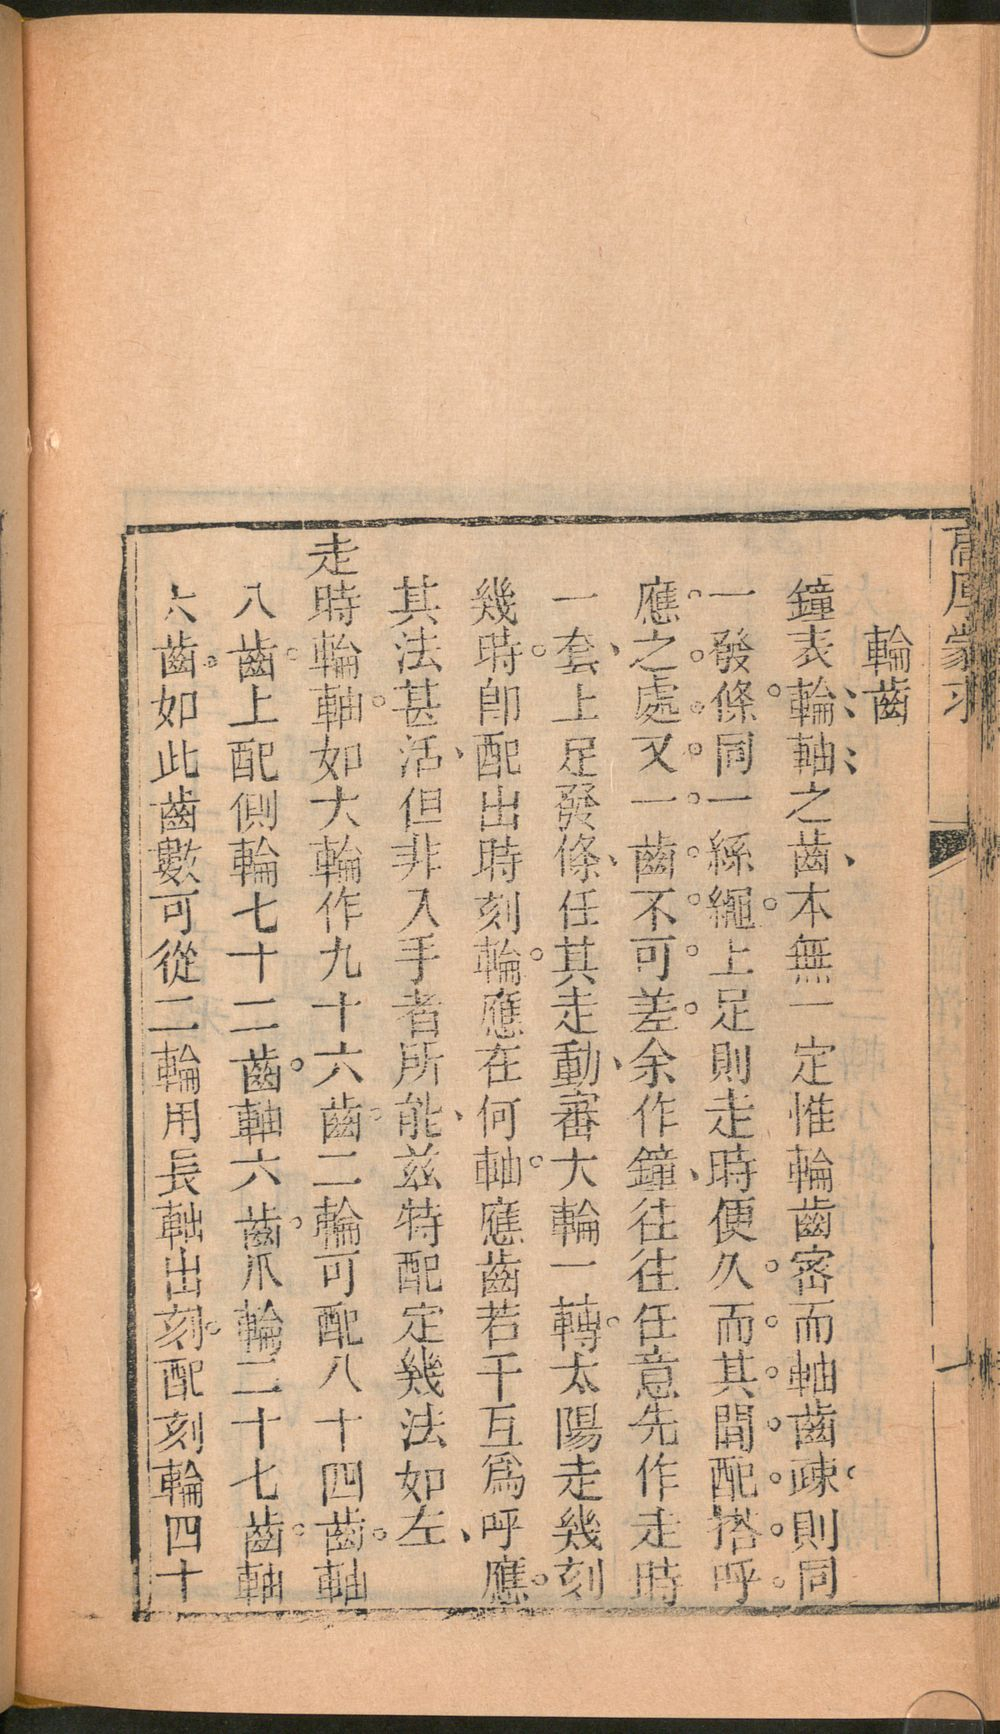 高厚蒙求
輪齒
鐘表輪軸之齒本無一定惟輪齒密而軸齒疎則同
一發條同一絲繩上足則走時便久而其間配搭呼
應之處又一齒不可差余作鐘往往任意先作走時
一套上足發條任其走動審大輪一轉太陽走幾刻
幾時卽配出時刻輪應在何軸應齒若干互爲呼應
其法甚活但非入手者所能兹特配定幾法如左
走時輪軸如大輪作九十六齒二輪可配八十四齒軸
八齒上配側輪七十二齒軸六齒爪輪二十七齒軸
六齒如此齒數可從二輪用長軸出刻配刻輪四十